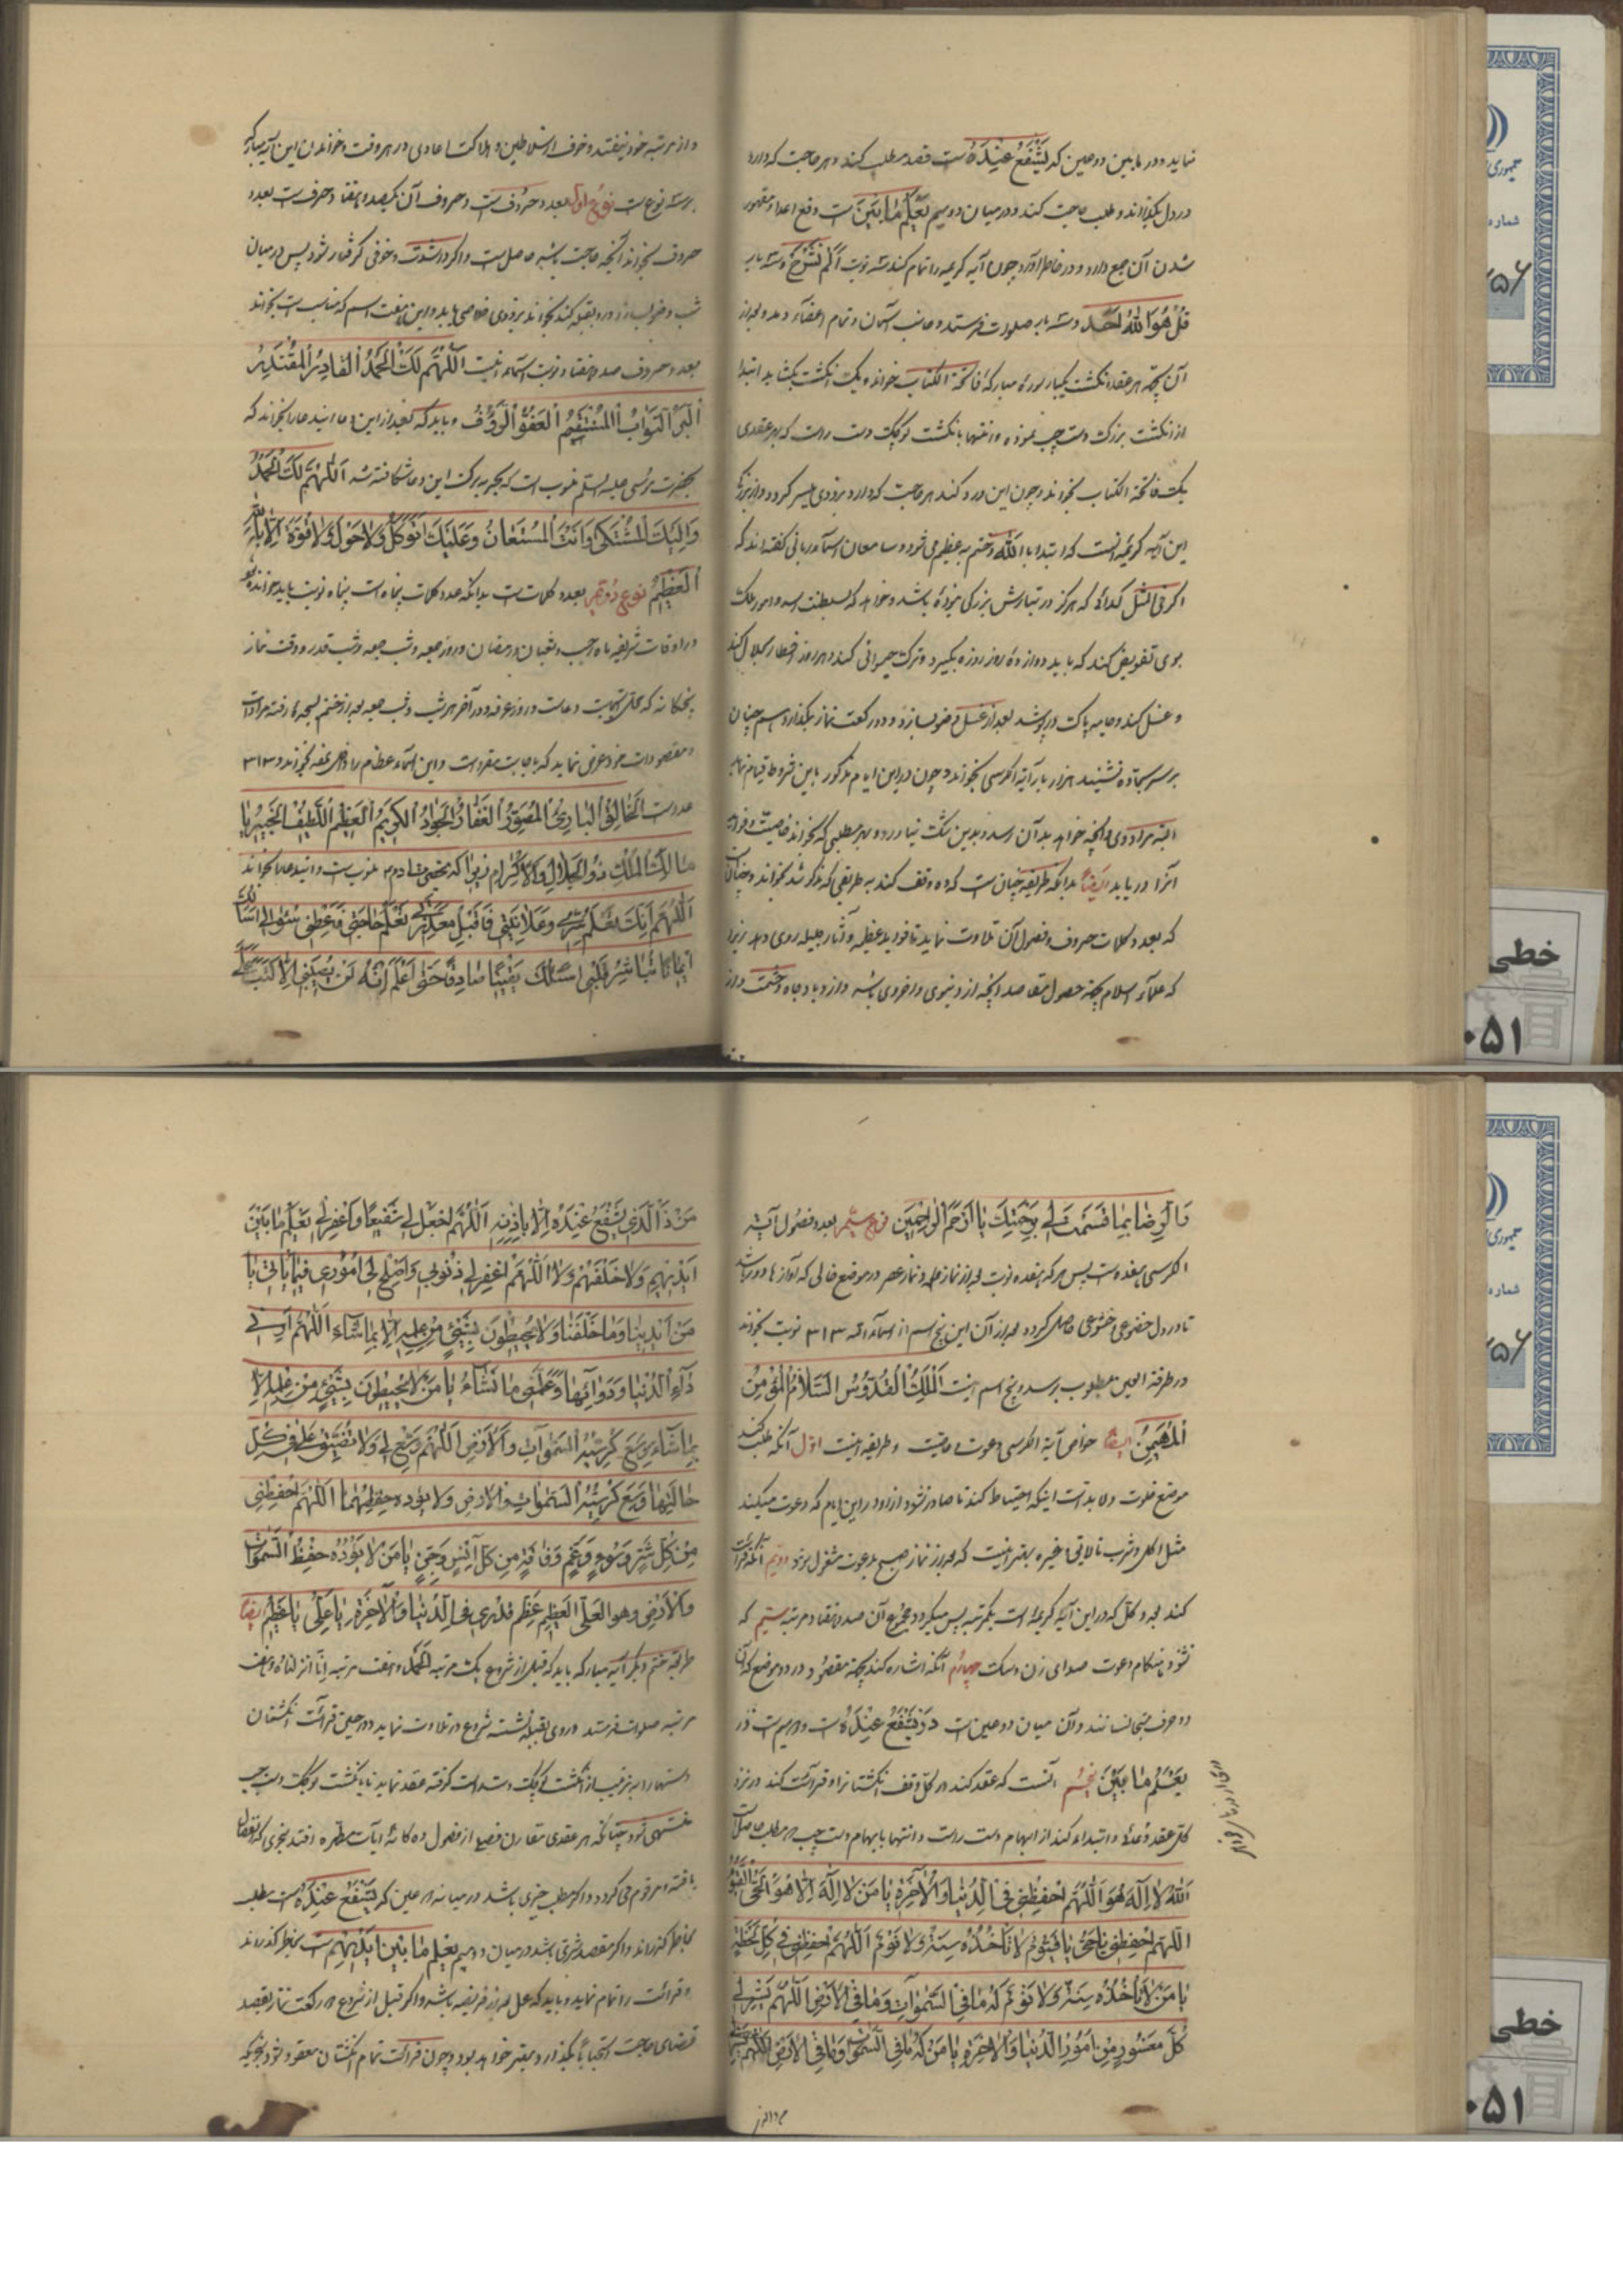 نماید و در مابین دو عین که یَشْفَعُ عِنْدَهُ است قصد مطلب کند و هر حاجت که دارد
در دل بگذراند و طلب حاجت کند و در میان دو میم یَعْلَمُ مَا بَیْنَ است دفع اعدا و مقهور
شدن آن جمع دارد و در خاطر آورد چون آیه کریمه را تمام کند سه نوبت اَلَمْ نَشْرَحْ و سه بار
قُلْ هُوَ اللّٰهُ اَحَد و سه بار صلوات فرستد و جانب آسمان و تمام اعضاء دمد و بعد از
آن بجهة هر عقد انگشت یکبار سوره مبارکه فاتحة الکتاب خوانده یک انگشت بگشاید ابتدا
از انگشت بزرگ دست چپ نموده و انتها بانگشت کوچک دست راست که بهر عقدی
یک فاتحة الکتاب بخواند و چون این ورد کند هر حاجت که دارد بزودی میسر گردد
این آیه کریمه است که ابتدا با الله و ختم به عظیم می شود و سامعان اسماء ربانی گفته اند که
اگر فی المثل گدائی که هرگز در تبارش بزرگی نبوده باشد و خواهد که سلطنت و امور ملک
بوی تفویض کند که باید دوازده روز روزه بگیرد و ترک حیوانی کند و هر روز افطار بحلال کند
و غسل کند و جامه پاک در پوشد بعد از غسل وضو بسازد و دو رکعت نماز بگذارد
بر سر سجاده نشیند هزار بار آیة الکرسی بخواند و چون در این ایام مذکور باین شروط قیام نماید
البته مراد وی و آنچه خواهد بدان رسد و بدین شک نیاورد و بهر مطلبی که بخواند خاصیت
آنرا دریابد ایضاً بدانکه طریقه چنان است که ده وقف کند به طریقی که مذکور شد بخواند
که بعدد کلمات حروف و فصول آن تلاوت نماید تا فواید عظیمه و آثار جلیله روی دهد زیرا
که علماء اسلام بجهة حصول مقاصد آنچه از دنیوی و اخروی باشد و ازدیاد جاه و حشمت
و از مرتبه خود نیفتد و خوف از سلاطین و هلاکت اعادی در هر وقت و خواندن این آیه مبارکه
بر سه نوع است نوع اول بعدد حروف است و حروف آن یکصد و هفتاد حرف است بعدد
حروف بخواند آنچه حاجت باشد حاصل است و اگر در شدت و خوفی گرفتار شود پس در میان
شب وضو بسازد و رو بقبله کند بخواند بزودی خلاصی یابد و این هفت اسم که مناسب است بخواند
بعدد حروف صد و هفتاد نوبت اسماء اینست اَللّٰهُمَّ لَکَ الْحَمْدُ الْقَادِرُ الْمُقْتَدِرُ
اَلْبَرُّ التَّوَّابُ الْمُنْتَقِمُ الْعَفُوُّ الرَّؤُفُ و باید که بعد از این دعا اینرا بخواند که
بحضرت موسی علیه السلم منسوب است که بحر به برکت این دعا شکافته شد اَللّٰهُمَّ لَکَ الْحَمْدُ
وَاِلَیْکَ الْمُشْتَکیٰ وَاَنْتَ الْمُسْتَعَانُ وَعَلَیْکَ اَتَوَکَّلُ وَلَا حَوْلَ وَلَا قُوَّةَ اِلَّا بِاللّٰهِ
اَلْعَظِیْمُ نوع دویم بعدد کلمات است بدانکه عدد کلمات پنجاه است پنجاه نوبت باید خواند
در اوقات شریفه ماه رجب و شعبان و رمضان و روز جمعه و شب جمعه و شب قدر و وقت نماز
پنجگانه که محل اجابت دعاست و روز عرفه و در آخر هر شب و شب جمعه بعد از ختم بسجده رفته مرادات
و مقصودات خود عرض نماید که باجابت مقرون است و این اسماء عظام را بخواند و ۳۱۳
عدد است الْخَالِقُ الْبَارِئُ الْمُصَوِّرُ الْغَفَّارُ الْجَوَادُ الْکَرِیْمُ الْعَظِیْمُ اللَّطِیْفُ الْخَبِیْرُ یَا
مَالِکَ الْمُلْکِ ذُوالْجَلَالِ وَالْاِکْرَامِ زیرا که بحضرت آدم منسوب است و این دعا بخواند
اَللّٰهُمَّ اِنَّکَ تَعْلَمُ سِرِّی وَعَلَانِیَتِی فَاقْبَلْ مَعْذِرَتِی تَعْلَمُ حَاجَتِی فَاعْطِنِی سُؤَالِی اَسْأَلُکَ
اِیْمَانًا تُبَاشِرُ قَلْبِی اَسْأَلُکَ یَقِیْنًا صَادِقًا حَتّیٰ اَعْلَمُ اَنَّهُ لَنْ یُصِیْبَنِی اِلَّا مَا کَتَبْتَ لِی
وَالرِّضَا بِمَا قَسَمْتَ لِی بِرَحْمَتِکَ یَا اَرْحَمَ الرَّاحِمِیْنَ نوع سیم بعدد فصول آیة
الکرسی هفده است پس هر که هفده نوبت بعد از نماز ظهر و نماز عصر در موضع خالی که آوازها دور باشد
تا در دل خضوعی خشوعی حاصل گردد بعد از آن این پنج اسم از اسماء الله ۳۱۳ نوبت بخواند
در طرفة العین بمطلوب برسد و پنج اسم اینست اَلْمَلِکُ الْقُدُّوسُ السَّلَامُ الْمُؤْمِنُ
اَلْمُهَیْمِنُ ایضاً خواص آیة الکرسی دعوت و طریقه اینست اول آنکه طلب کند
موضع خلوت و لابد است اینکه احتیاط کند تا صادر نشود از او در این ایام که دعوت میکند
مثل اکل و شرب نالایق و غیره بهتر اینست که بعد از نماز صبح بدعوت مشغول شود دویم آنکه قرائت
کند بعدد کل که در این آیه کریمه است یکمرتبه پس میگردد مجموع آن صد و هفتاد مرتبه سیم که
نشنود هنگام دعوت صدای زن و سگ چهارم آنکه اشاره کند بجهة مقصود در دو موضع که آن
دو حرف متجانسانند و آن میان دو عین است در یَشْفَعُ عِنْدَهُ است و دو میم است در
یَعْلَمُ مَا بَیْنَ پنجم آنست که عقد کند در کل وقف انگشتانرا و قرائت کند در نزد
کل عقد دعا و ابتداء کند از ابهام دست راست و انتها بابهام دست چپ هر مطلب حاصل
اَللّٰهُ لَا اِلٰهَ اِلَّا هُوَ اَللّٰهُمَّ احْفَظْنِی فِی الدُّنْیَا وَالْآخِرَةِ یَا مَنْ لَا اِلٰهَ اِلَّا هُوَ الْحَیُّ الْقَیُّوْمُ
اَللّٰهُمَّ احْفَظْنِی یَا حَیُّ یَا قَیُّوْمُ لَا تَأْخُذُهُ سِنَةٌ وَلَا نَوْمٌ اَللّٰهُمَّ احْفَظْنِی فِی کُلِّ لَحْظَةٍ
یَا مَنْ لَا تَأْخُذُهُ سِنَةٌ وَلَا نَوْمٌ لَهُ مَا فِی السَّمٰوَاتِ وَمَا فِی الْاَرْضِ اَللّٰهُمَّ یَسِّرْ لِی
کُلَّ مَعْسُوْرٍ مِنْ اُمُوْرِ الدُّنْیَا وَالْآخِرَةِ یَا مَنْ لَهُ مَا فِی السَّمٰوَاتِ وَمَا فِی الْاَرْضِ
مَنْ ذَا الَّذِی یَشْفَعُ عِنْدَهُ اِلَّا بِاِذْنِهِ اَللّٰهُمَّ اجْعَلْ لِی شَفِیْعًا وَاغْفِرْلِی یَعْلَمُ مَا بَیْنَ
اَیْدِیْهِمْ وَمَا خَلْفَهُمْ وَلَا اَللّٰهُمَّ اغْفِرْلِی ذُنُوْبِی وَاَصْلِحْ لِی اُمُوْرِی فِیْمَا یَأْتِی یَا
مَنْ اَیْدِیْنَا وَمَا خَلْفَنَا وَلَا یُحِیْطُوْنَ بِشَیْءٍ مِنْ عِلْمِهِ اِلَّا بِمَا شَاءَ اَللّٰهُمَّ اَرِنِی
دَاءَ الدُّنْیَا وَدَوَائَهَا وَعَلِّمْنِی مَا تَشَاءُ یَا مَنْ لَا یُحِیْطُوْنَ بِشَیْءٍ مِنْ عِلْمِهِ اِلَّا
بِمَا شَاءَ وَسِعَ کُرْسِیُّهُ السَّمٰوَاتِ وَالْاَرْضَ اَللّٰهُمَّ وَسِّعْ لِی وَلَا تُضَیِّقْ عَلَیَّ فِی کُلِّ
حَالَتِهَا وَسِعَ کُرْسِیُّهُ السَّمٰوَاتِ وَالْاَرْضَ وَلَا یَؤُدُهُ حِفْظُهُمَا اَللّٰهُمَّ احْفَظْنِی
مِنْ کُلِّ شَرٍّ وَسُوْءٍ وَغَمٍّ وَفَاقَةٍ مِنْ کُلِّ اِنْسٍ وَجِنٍّ یَا مَنْ لَا یَؤُدُهُ حِفْظُ السَّمٰوَاتِ
وَالْاَرْضِ وَهُوَ الْعَلِیُّ الْعَظِیْمُ عَظِّمْ قَدْرِی فِی الدُّنْیَا وَالْآخِرَةِ یَا عَلِیُّ یَا عَظِیْمُ ایضاً
طریقه ختم دیگر آیه مبارکه باید که قبل از شروع یک مرتبه الحمد و هفت مرتبه انا انزلناه و هفت
مرتبه صلوات فرستد و روی بقبله نشسته شروع در تلاوت نماید و در حین قرائت انگشتان
دستها را به ترتیب از انگشت کوچک دست راست گرفته عقد نماید تا بانگشت کوچک دست چپ
منتهی شود چنانکه هر عقدی مقارن فصلی از فصول ده گانه آیات مطهره افتد بنحوی که
یافته و مرقوم می گردد و اگر مطلب خیری باشد در میانه دو عین که یَشْفَعُ عِنْدَهُ است مطلب
بخاطر گذراند و اگر مقصد شری باشد در میان دو میم یَعْلَمُ مَا بَیْنَ اَیْدِیْهِمْ است بخاطر گذراند
و قرائت را تمام نماید و باید که عمل بعد از فریضه باشد و اگر قبل از شروع دو رکعت نماز بقصد
قضای حاجت استحباباً بگذارد معتبر خواهد بود و چون قرائت تمام انگشتان معقود شود بنحویکه
خطی
۰۵۱
شماره
خطی
۰۵۱
شماره